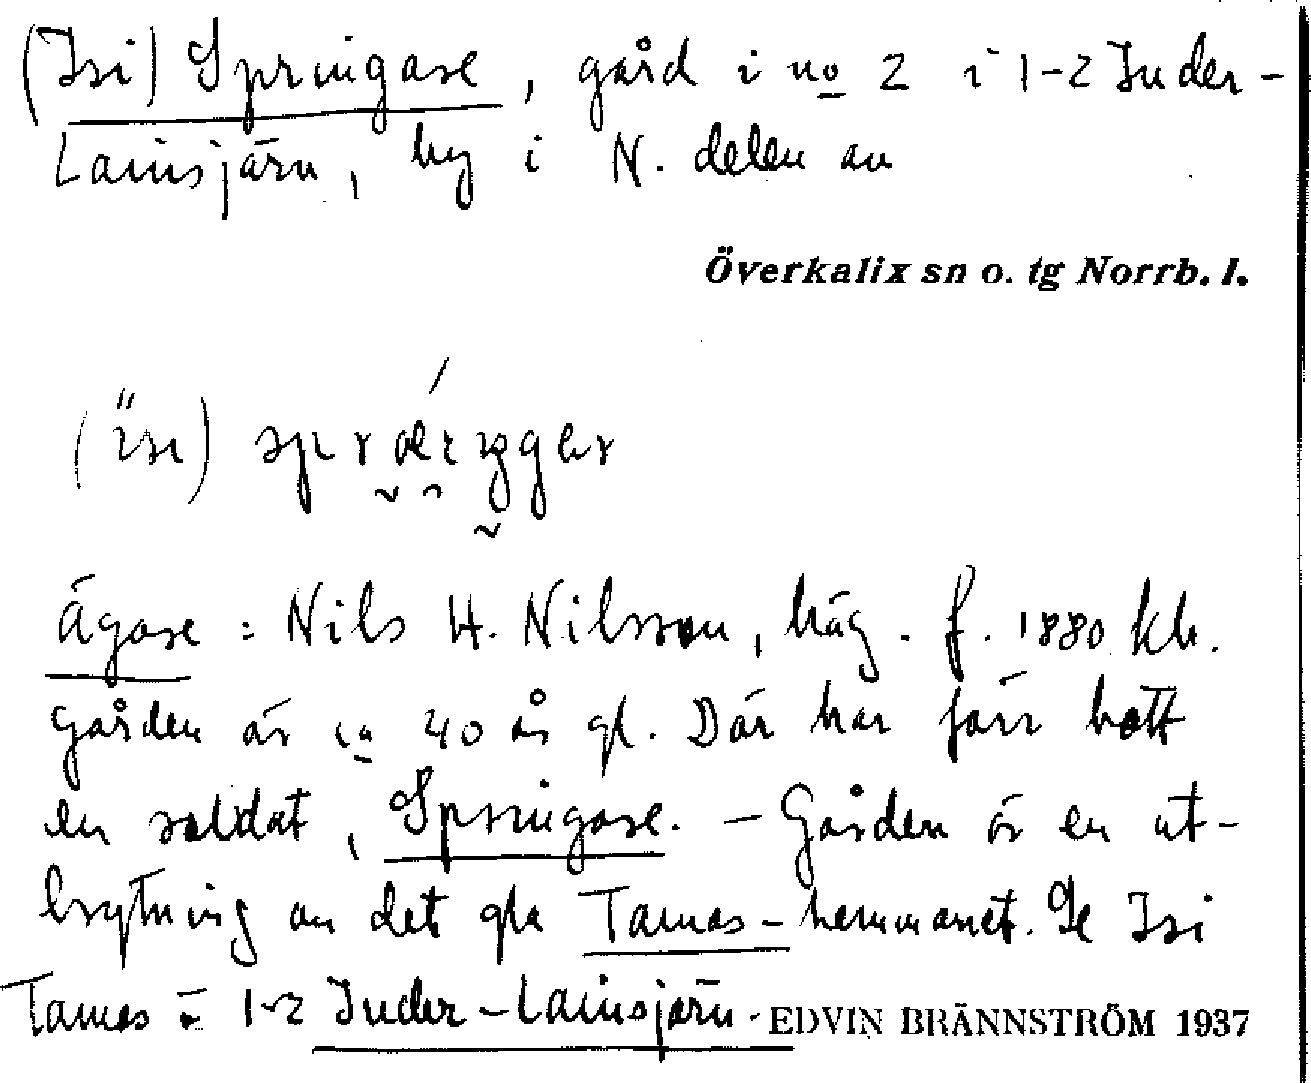 (Isi) Springare, gård i no 2 i 1-2 Inder-
Lansjärv, by i N. delen av
Överkalix sn o. tg Norrb. l.
Ägare: Nils H. Nilsson, häg. f. 1880 kh.
Gården är ca 40 år gl. Där har förr bott
en soldat, Springare. – Gården är en ut-
brytning av det gla Tamas-hemmanet. Se Isi
Tamas i 1-2 Inder-Lansjärv.
EDVIN BRÄNNSTRÖM 1937